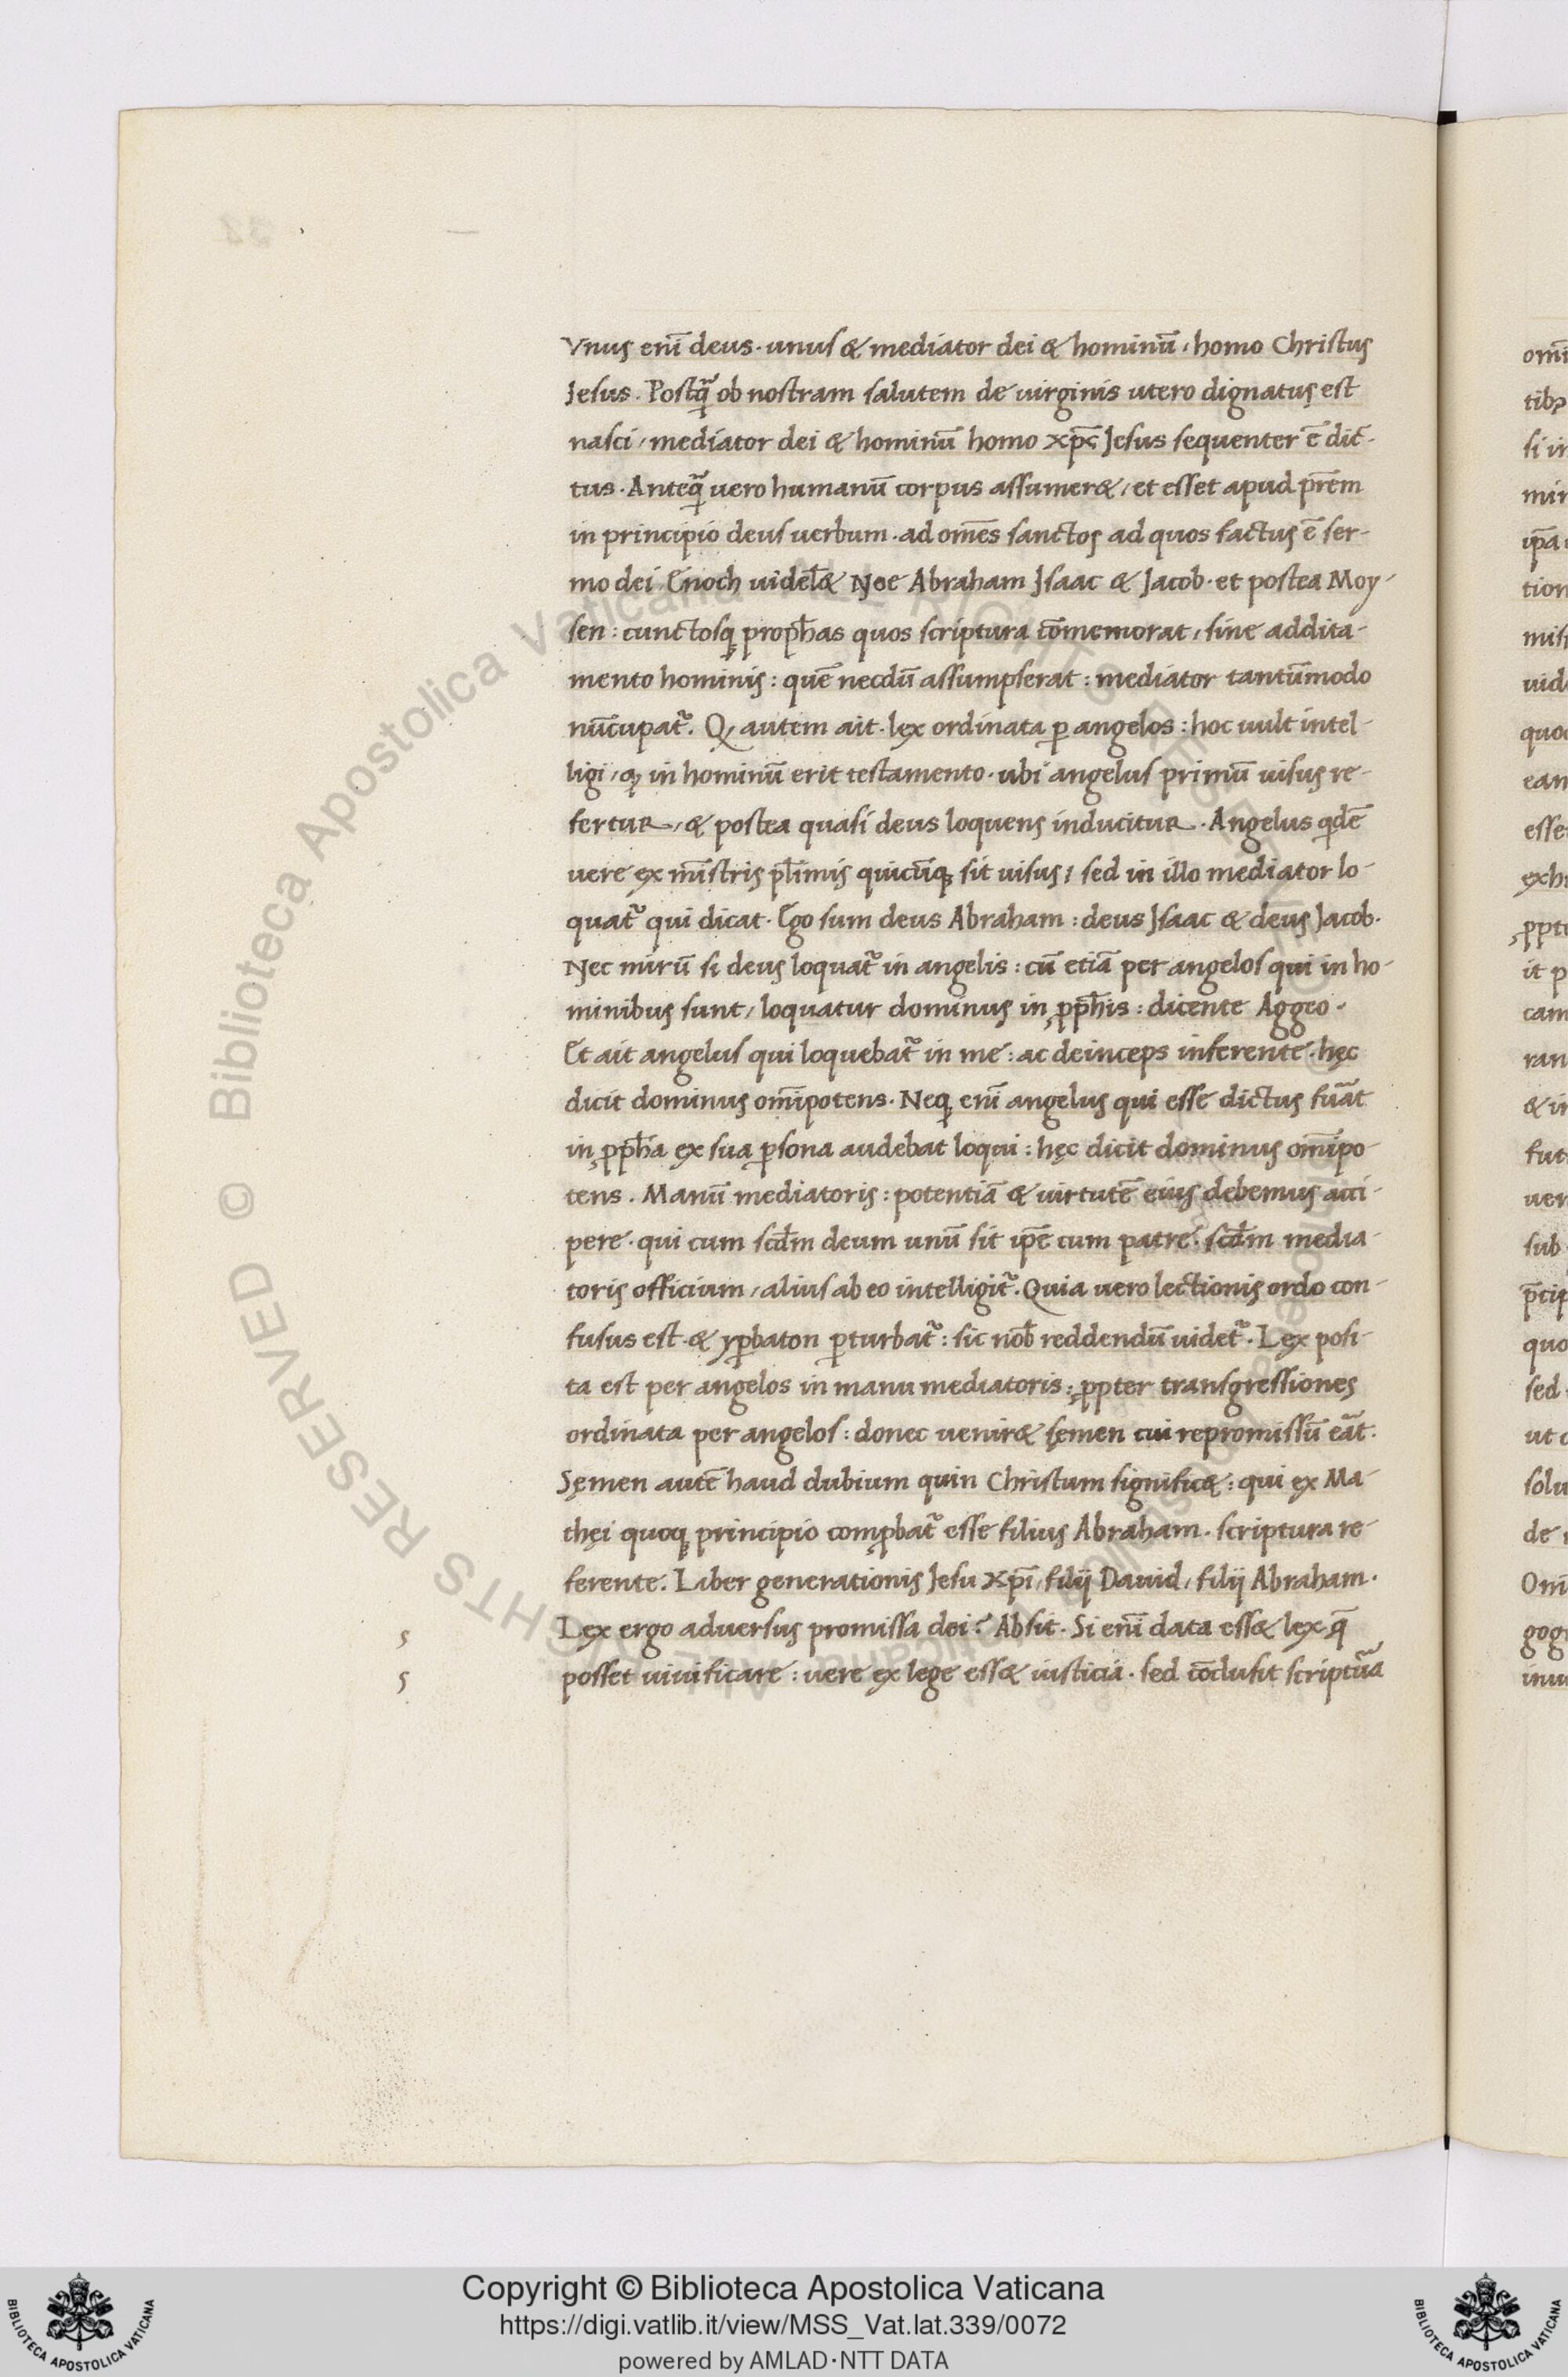 Vnus eni̅ deus· unus & mediator dei & hominu̅, homo Christus
Jesus. Postꝙ̃ ob nostram salutem de uirginis utero dignatus est
nasci, mediator dei & hominu̅ homo xp̅s Jesus sequenter e̅ dic-
tus. Anteꝙ̃ uero humanu̅ corpus assumer&, et esset apud pr̅em
in principio deus uerbum. ad om̅es sanctos ad quos factus e̅ ser-
mo dei. Enoch uidel& Noe Abraham Jsaac & Jacob· et postea Moy-
sen: cunctosq; proph̅as quos scriptura co̅memorat, sine addita-
mento hominis: que̅ necdu̅ assumpserat: mediator tantu̅modo
nu̅cupat᷑. Q autem ait. lex ordinata ꝑ angelos: hoc uult intel-
ligi, ꝙ in hominu̅ erit testamento. ubi angelus primu̅ uisus re-
fertur, & postea quasi deus loquens inducitur. Angelus qde̅
uere ex mi̅stris pl̅imis quicu̅q; sit uisus, sed in illo mediator lo-
quat᷑ qui dicat. Ego sum deus Abraham: deus Jsaac & deus Jacob.
Nec miru̅ si deus loquat᷑ in angelis: cu̅ etia̅ per angelos qui in ho-
minibus sunt, loquatur dominus in ꝓph̅is: dicente Aggeo.
Et ait angelus qui loquebat᷑ in me: ac deinceps inferente. hęc
dicit dominus om̅ipotens. Neq; eni̅ angelus qui esse dictus fua̅t
in ꝓph̅a ex sua ꝑsona audebat loqui: hęc dicit dominus om̅ipo-
tens. Manu̅ mediatoris: potentia̅ & uirtute̅ eius debemus acci-
pere. qui cum scd̅m deum unu̅ sit ip̅e cum patre. scd̅m media-
toris officium, alius ab eo intelligit᷑. Quia uero lectionis ordo con-
fusus est & yꝑbaton ꝑturbat᷑: sic nob̅ reddendu̅ uidet᷑. Lex posi-
ta est per angelos in manu mediatoris: ꝓpter transgressiones
ordinata per angelos: donec uenir& sęmen cui repromissu̅ ea̅t.
Sęmen aute̅ haud dubium quin Christum signific&: qui ex Ma-
thęi quoq; principio comꝓbat᷑ esse filius Abraham. scriptura re-
ferente. Liber generationis Jesu xp̅i, filij Dauid, filij Abraham.
Lex ergo aduersus promissa dei? Absit. Si eni̅ data ess& lex q̅
posset uiuificare: uere ex lege ess& iusticia. sed co̅clusit scriptu̅a
Copyright © Biblioteca Apostolica Vaticana
https://digi.vatlib.it/view/MSS_Vat.lat.339/0072
powered by AMLAD·NTT DATA